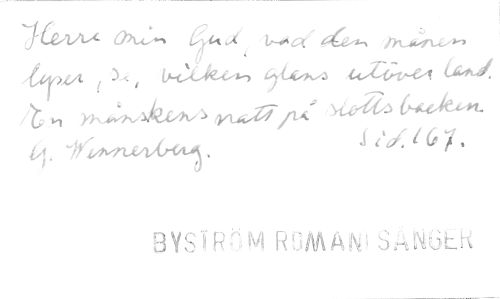 Herre min Gud, vad den månen
lyser, se, vilken glans utöver land.
En månskens natt på slottsbacken
G. Wennerberg. Sid. 167.
BYSTRÖM ROMANI SÅNGER